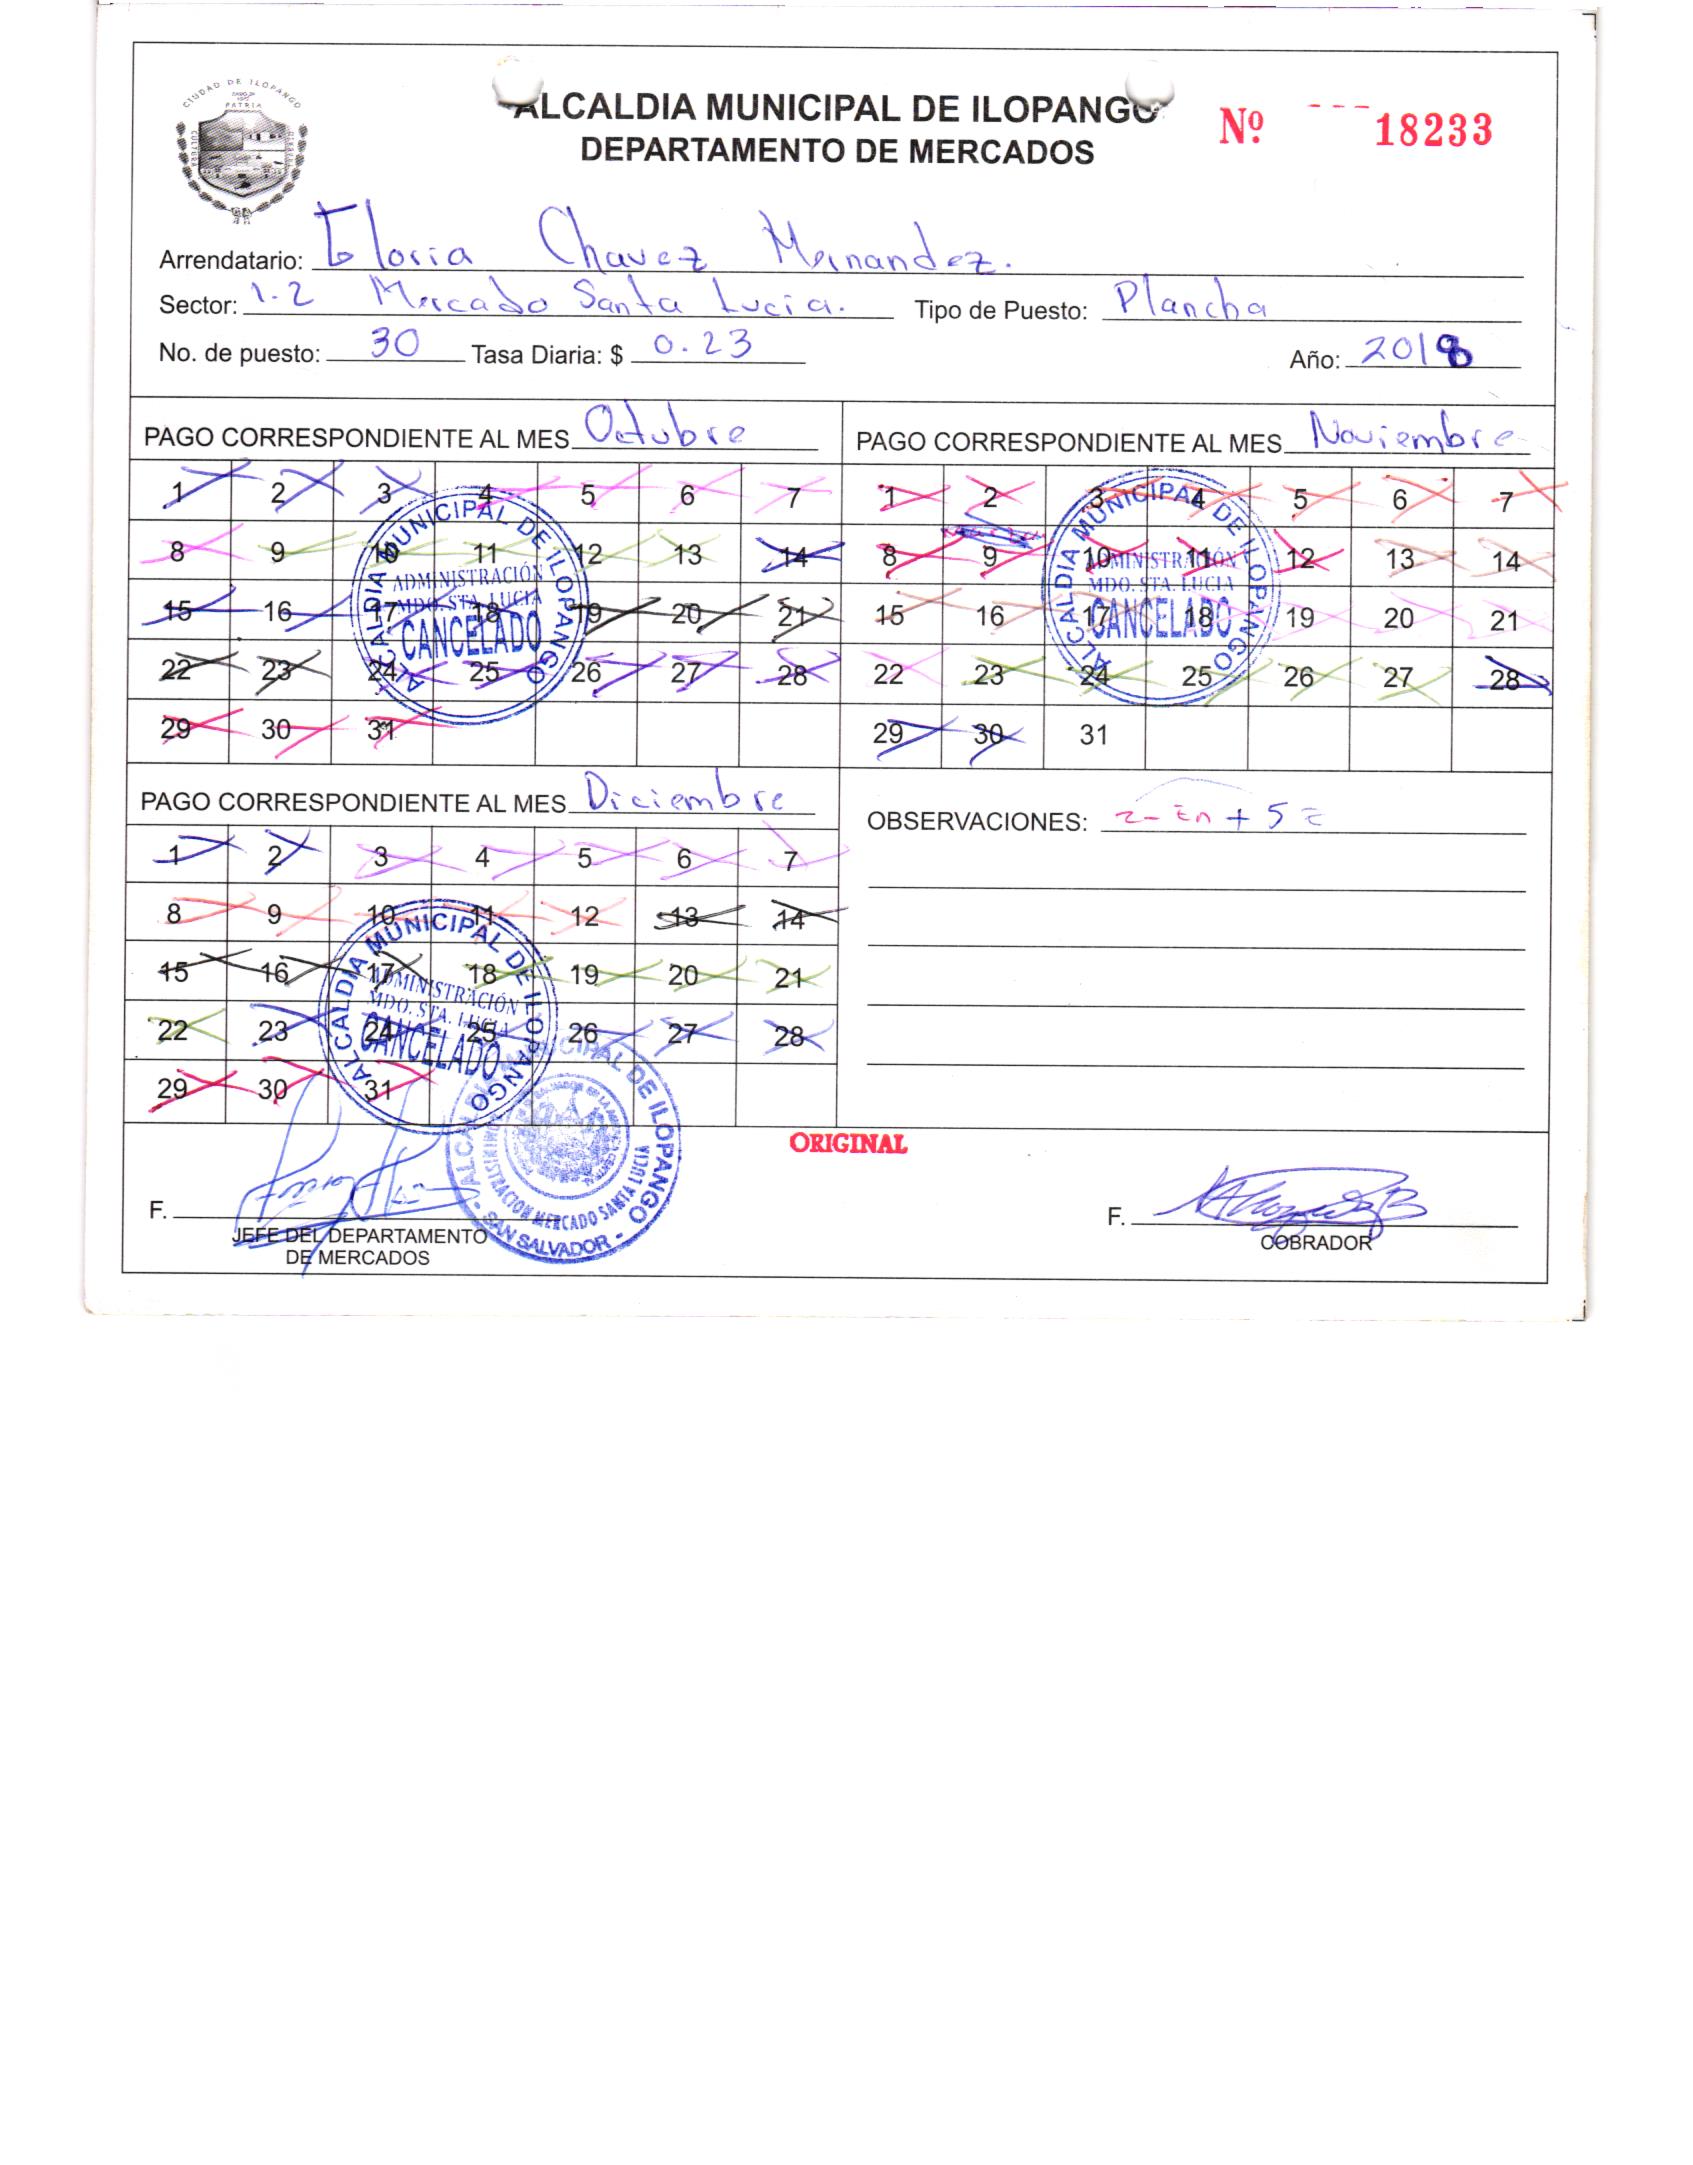 CIUDAD DE ILOPANGO
PATRIA
CULTURA
ALCALDIA MUNICIPAL DE ILOPANGO
DEPARTAMENTO DE MERCADOS
Nº 18233
Arrendatario: Gloria Chavez Hernandez.
Sector: 1-2 Mercado Santa Lucia. Tipo de Puesto: Plancha
No. de puesto: 30 Tasa Diaria: $ 0.23 Año: 2018
PAGO CORRESPONDIENTE AL MES Octubre
1 2 3 4 5 6 7
8 9 10 11 12 13 14
15 16 17 18 19 20 21
22 23 24 25 26 27 28
29 30 31
ALCALDIA MUNICIPAL DE ILOPANGO
ADMINISTRACIÓN
MDO. STA. LUCIA
CANCELADO
PAGO CORRESPONDIENTE AL MES Noviembre
1 2 3 4 5 6 7
8 9 10 11 12 13 14
15 16 17 18 19 20 21
22 23 24 25 26 27 28
29 30 31
ALCALDIA MUNICIPAL DE ILOPANGO
ADMINISTRACIÓN
MDO. STA. LUCIA
CANCELADO
PAGO CORRESPONDIENTE AL MES Diciembre
1 2 3 4 5 6 7
8 9 10 11 12 13 14
15 16 17 18 19 20 21
22 23 24 25 26 27 28
29 30 31
ALCALDIA MUNICIPAL DE ILOPANGO
ADMINISTRACIÓN
MDO. STA. LUCIA
CANCELADO
OBSERVACIONES:
ORIGINAL
ALCALDIA MUNICIPAL DE ILOPANGO
ADMINISTRACION MERCADO SANTA LUCIA
- SAN SALVADOR -
F.
JEFE DEL DEPARTAMENTO
DE MERCADOS
F.
COBRADOR